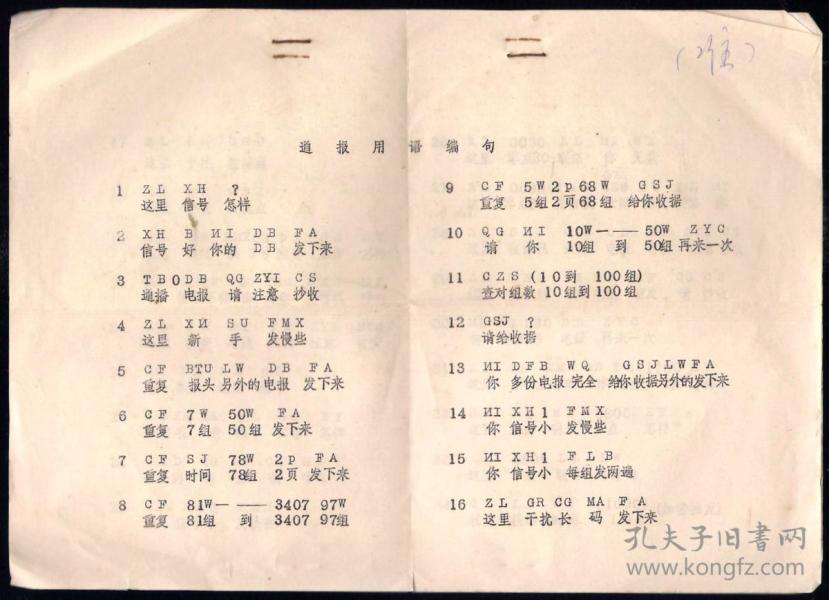 (难)
通报用语编句
1 ZL XH ?
这里 信号 怎样
2 XH B ИI DB FA
信号 好 你的 DB 发下来
3 TBODB QG ZYI CS
通播 电报 请 注意 抄收
4 ZL XИ SU FMX
这里 新 手 发慢些
5 CF BTU LW DB FA
重复 报头 另外的 电报 发下来
6 CF 7W 50W FA
重复 7组 50组 发下来
7 CF SJ 78W 2p FA
重复 时间 78组 2页 发下来
8 CF 81W———3407 97W
重复 81组 到 3407 97组
9 CF 5W2p68W GSJ
重复 5组2页68组 给你收据
10 QG ИI 10W———50W ZYC
请 你 10组 到 50组 再来一次
11 CZS (10到 100组)
查对组数 10组到100组
12 GSJ ?
请给收据
13 ИI DFB WQ GSJLWFA
你 多份电报 完全 给你收据另外的发下来
14 ИI XH1 FMX
你 信号小 发慢些
15 ИI XH1 FLB
你 信号小 每组发两遍
16 ZL GR CG MA FA
这里 干扰 长 码 发下来
孔夫子旧书网
www.kongfz.com